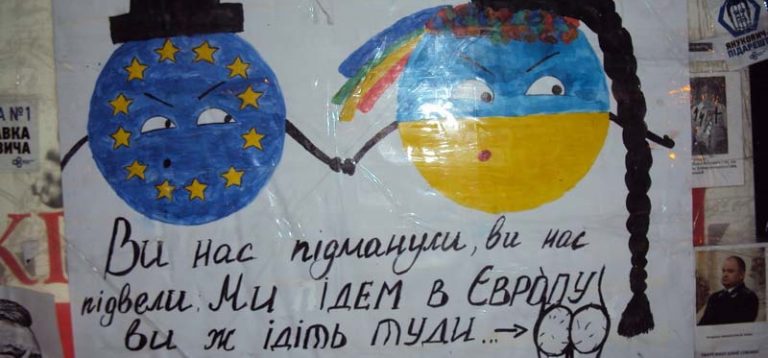 ЯНУКОВИЧ
ПІДАРЕШТ
А №1
АВКА
ВИЧА
Ви нас підманули, ви нас
підвели. Ми ідем в Європу!
ви ж ідіть туди...→